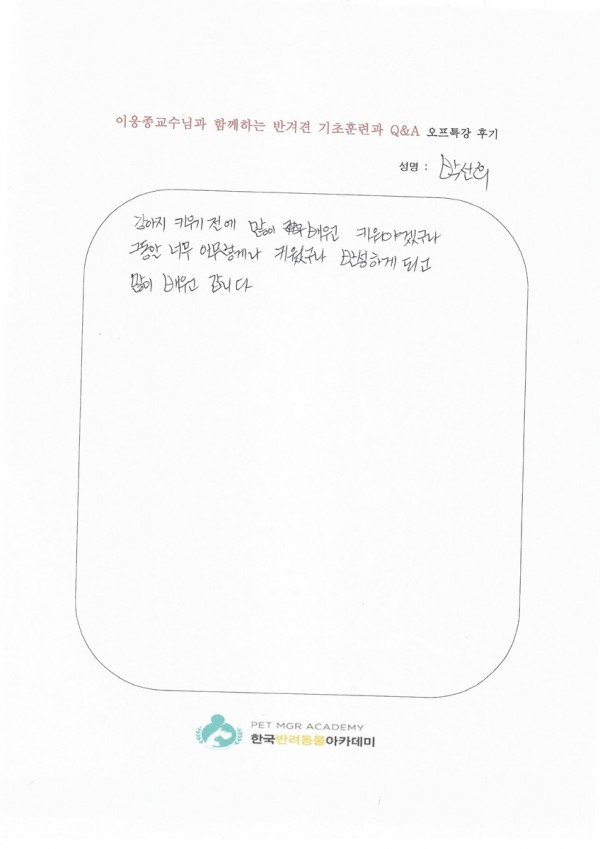 이웅종교수님과 함께하는 반겨견 기초훈련과 Q&A 오프특강 후기
성명 : 박선희
강아지 키우기 전에 많이 배우고 키워야겠구나
그동안 너무 아무렇게나 키웠구나 반성하게 되고
많이 배우고 갑니다
PET MGR ACADEMY
한국반려동물아카데미